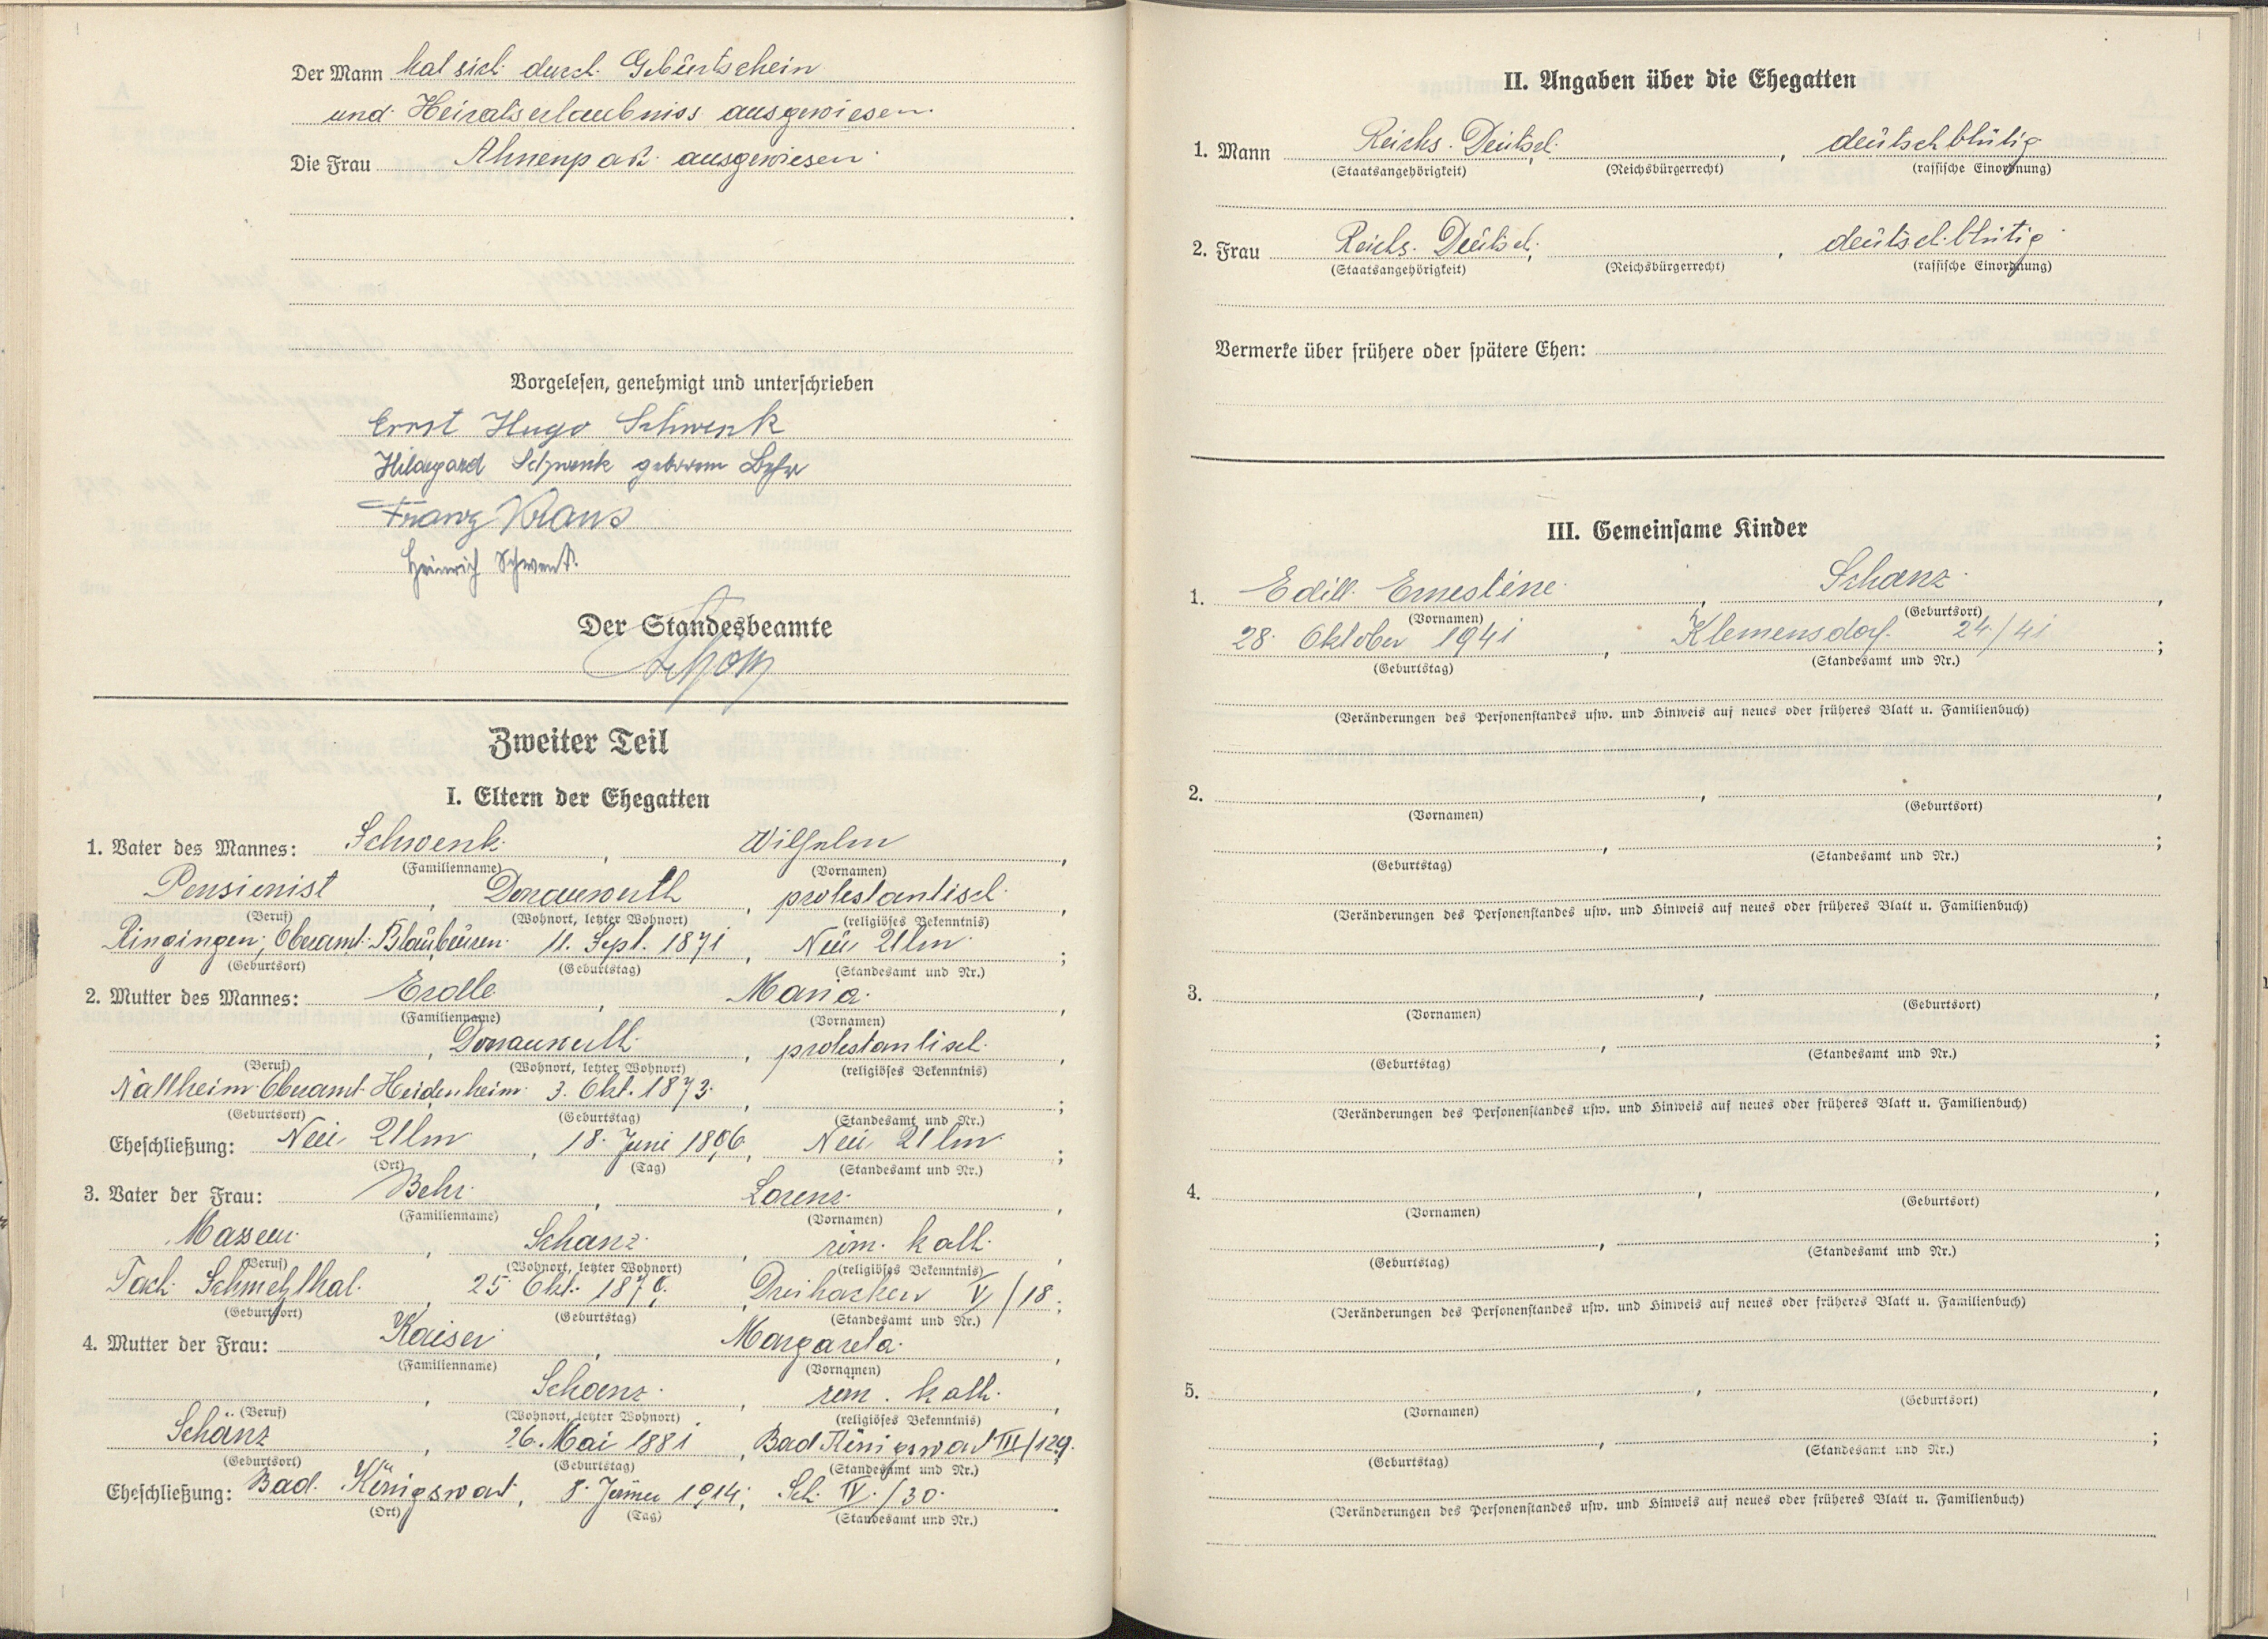 Der Mann hat sich durch Gebürtschein
und Heiratserlaubniss ausgewiesen.
Die Frau Ahnenpaß ausgewiesen
Vorgelesen, genehmigt und unterschrieben
Ernst Hugo Schwenk
Hildegard Schwenk geborene Behr
Franz Kraus
Heinrich Schwenk
Der Standesbeamte
Zweiter Teil
I. Eltern der Ehegatten
1. Vater des Mannes: Schwenk, Wilhelm,
(Familienname) (Vornamen)
Pensionist, Donauwörth, protestantisch,
(Beruf) (Wohnort, letzter Wohnort) (religiöses Bekenntnis)
Ringingen, Oberamt Blaübeüren 11. Sept. 1871, Neü Ulm;
(Geburtsort) (Geburtstag) (Standesamt und Nr.)
2. Mutter des Mannes: Erdle, Maria,
(Familienname) (Vornamen)
, Donauwörth, protestantisch,
(Beruf) (Wohnort, letzter Wohnort) (religiöses Bekenntnis)
Nattheim Oberamt Heidenheim 3. Okt. 1873, ;
(Geburtsort) (Geburtstag) (Standesamt und Nr.)
Eheschließung: Neü Ulm, 18. Juni 1896, Neü Ulm;
(Ort) (Tag) (Standesamt und Nr.)
3. Vater der Frau: Behr, Lorenz,
(Familienname) (Vornamen)
, Schanz, röm. kath.,
(Beruf) (Wohnort, letzter Wohnort) (religiöses Bekenntnis)
Schmelzthal, 25 Okt. Dreihacken V/18;
(Geburtsort) (Geburtstag) (Standesamt und Nr.)
4. Mutter der Frau: Kaiser, Margareta,
(Familienname) (Vornamen)
, Schanz, röm. kath.,
(Beruf) (Wohnort, letzter Wohnort) (religiöses Bekenntnis)
Schanz, 26. Mai 1881, Bad Königswart III/129.
(Geburtsort) (Geburtstag) (Standesamt und Nr.)
Eheschließung: Bad Königswart, 8. Jänner 1914, Sch. IV./30.
(Ort) (Tag) (Standesamt und Nr.)
II. Angaben über die Ehegatten
1. Mann Reichs. Deütsch, , deütschblütig
(Staatsangehörigkeit) (Reichsbürgerrecht) (rassische Einordnung)
2. Frau Reichs. Deütsch, , deütschblütig
(Staatsangehörigkeit) (Reichsbürgerrecht) (rassische Einordnung)
Vermerke über frühere oder spätere Ehen:
III. Gemeinsame Kinder
1. Edith Ernestine, Schanz,
(Vornamen) (Geburtsort)
28. Oktober 1941, Klemensdorf 24/41;
(Geburtstag) (Standesamt und Nr.)
(Veränderungen des Personenstandes usw. und Hinweis auf neues oder früheres Blatt u. Familienbuch)
2. , ,
(Vornamen) (Geburtsort)
, ;
(Geburtstag) (Standesamt und Nr.)
(Veränderungen des Personenstandes usw. und Hinweis auf neues oder früheres Blatt u. Familienbuch)
3. , ,
(Vornamen) (Geburtsort)
, ;
(Geburtstag) (Standesamt und Nr.)
(Veränderungen des Personenstandes usw. und Hinweis auf neues oder früheres Blatt u. Familienbuch)
4. , ,
(Vornamen) (Geburtsort)
, ;
(Geburtstag) (Standesamt und Nr.)
(Veränderungen des Personenstandes usw. und Hinweis auf neues oder früheres Blatt u. Familienbuch)
5. , ,
(Vornamen) (Geburtsort)
, ;
(Geburtstag) (Standesamt und Nr.)
(Veränderungen des Personenstandes usw. und Hinweis auf neues oder früheres Blatt u. Familienbuch)